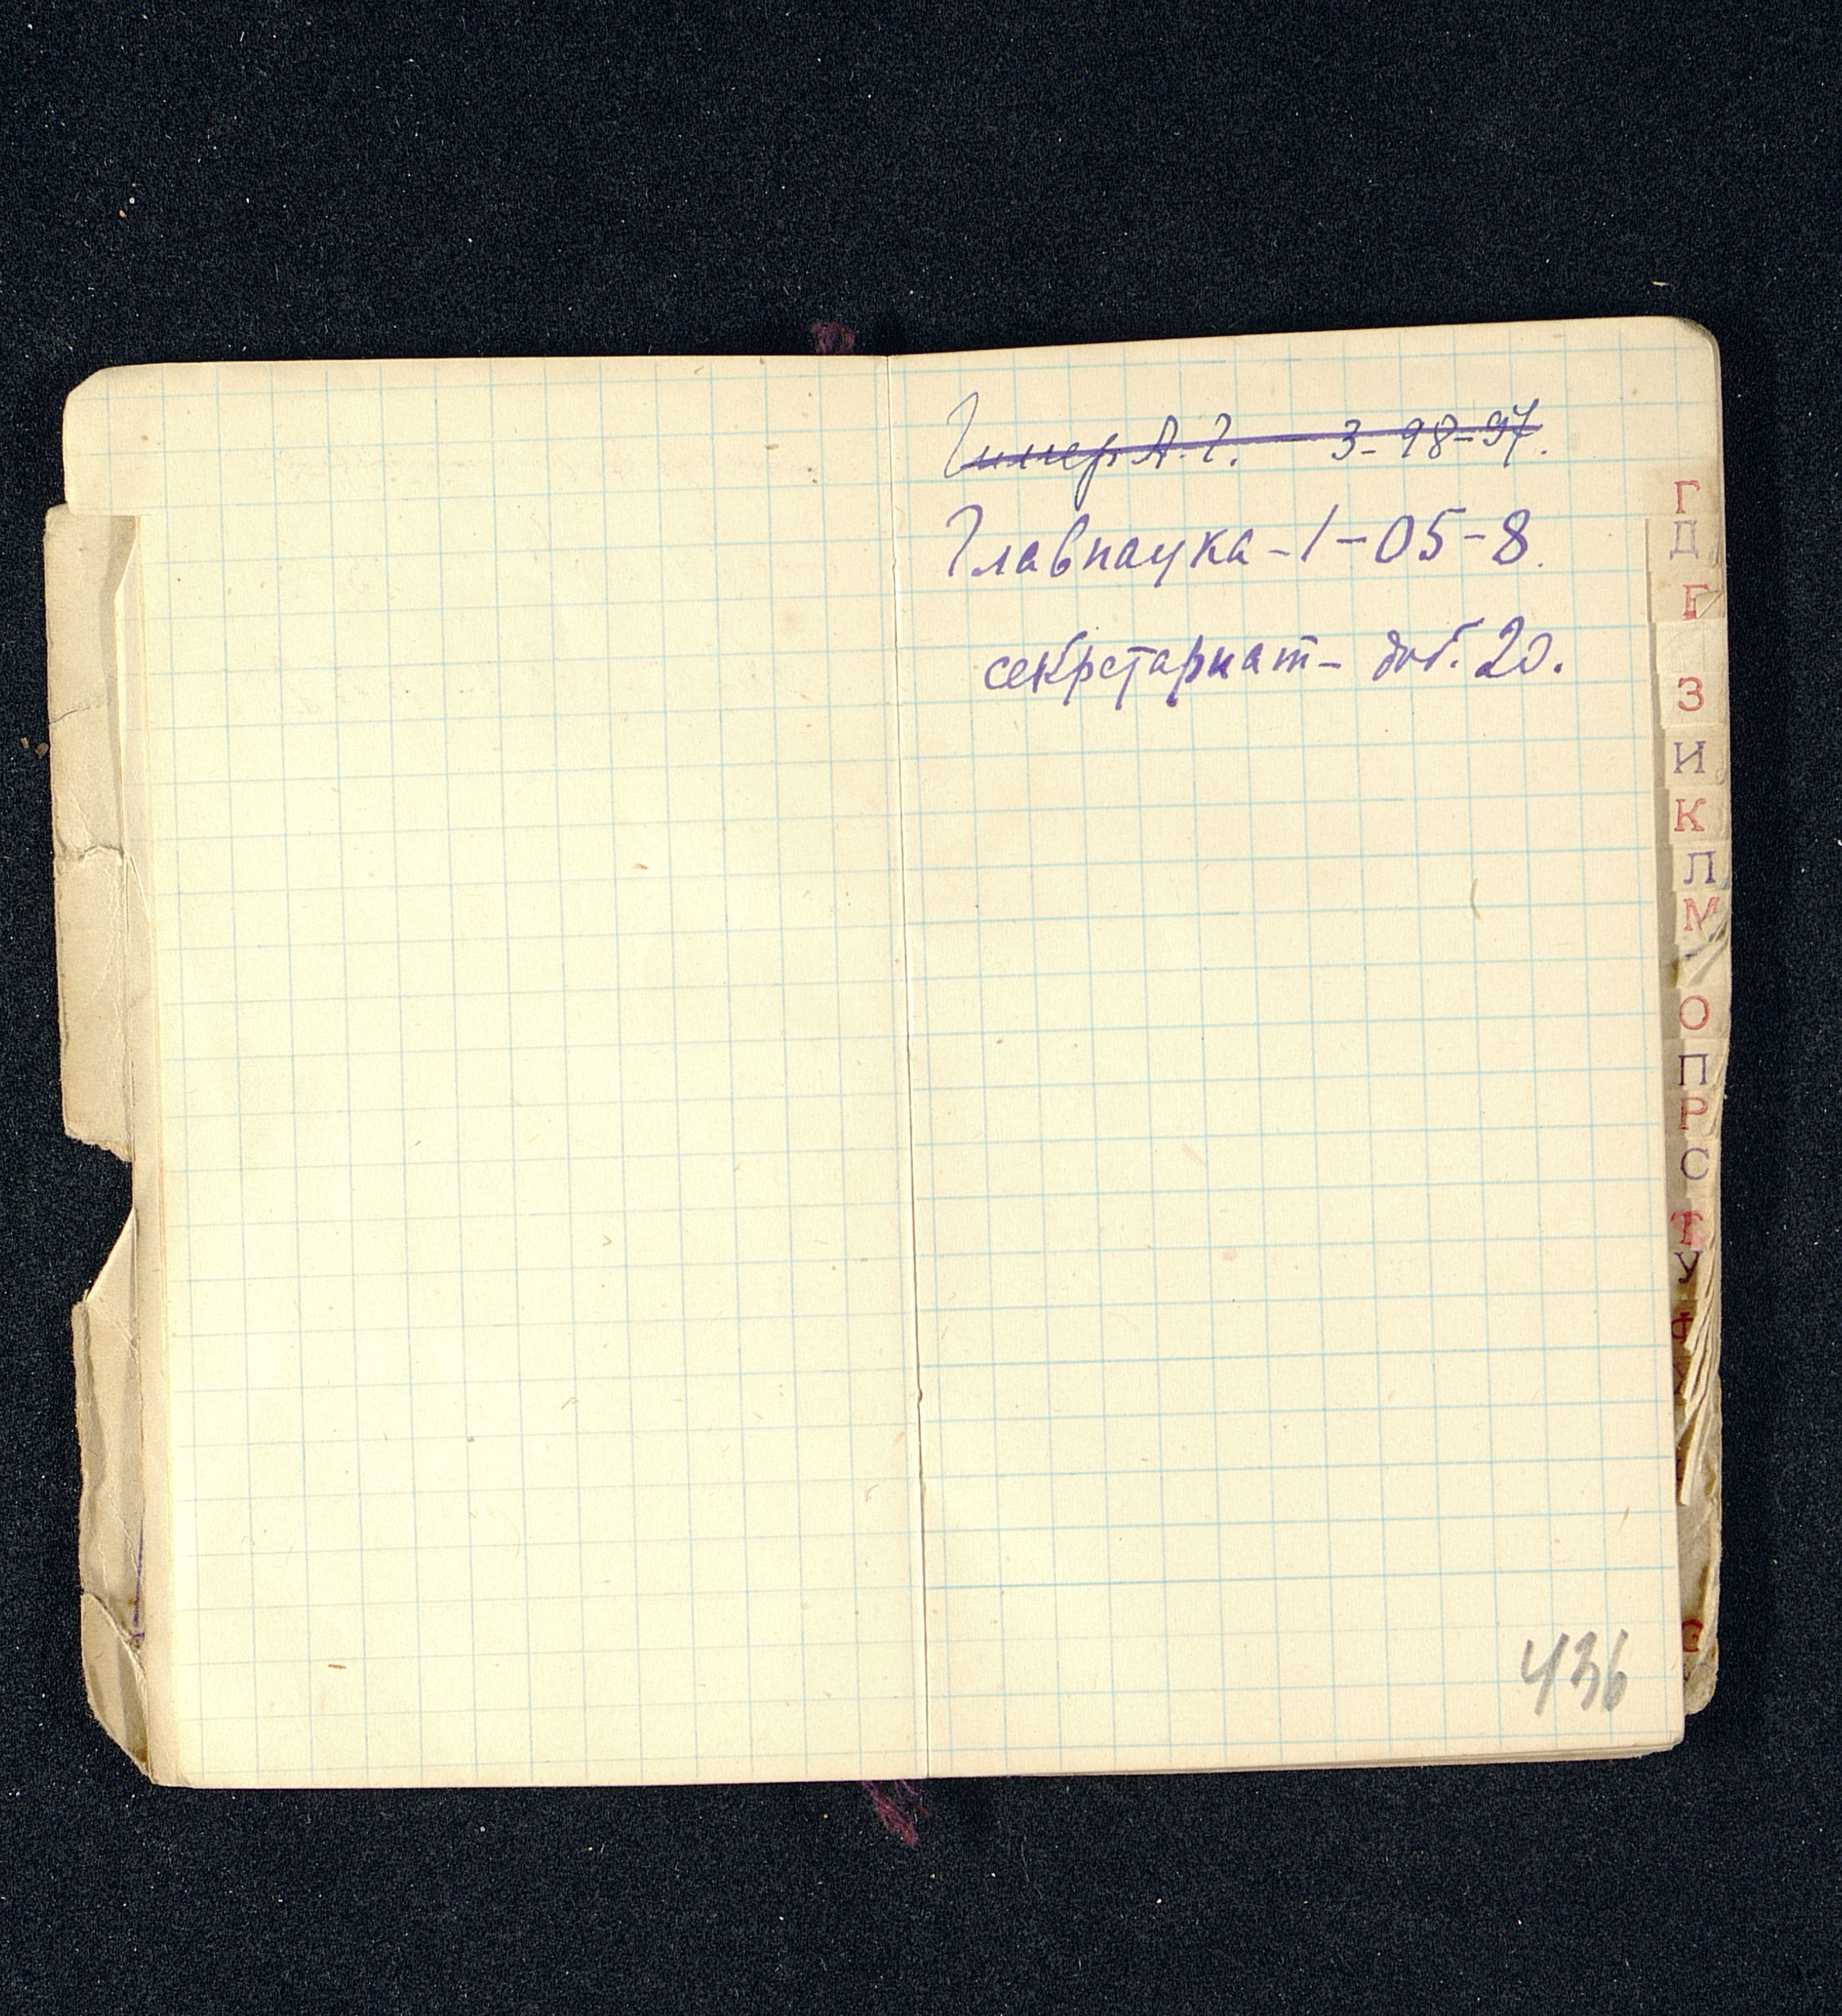 Гимер А. Г. — 3-98-97.
Главнаука - 1-05-8.
секретариат - доб. 20.
Г
Д
Е
З
И
К
Л
М
О
П
Р
С
Т
У
Ф
Х
436